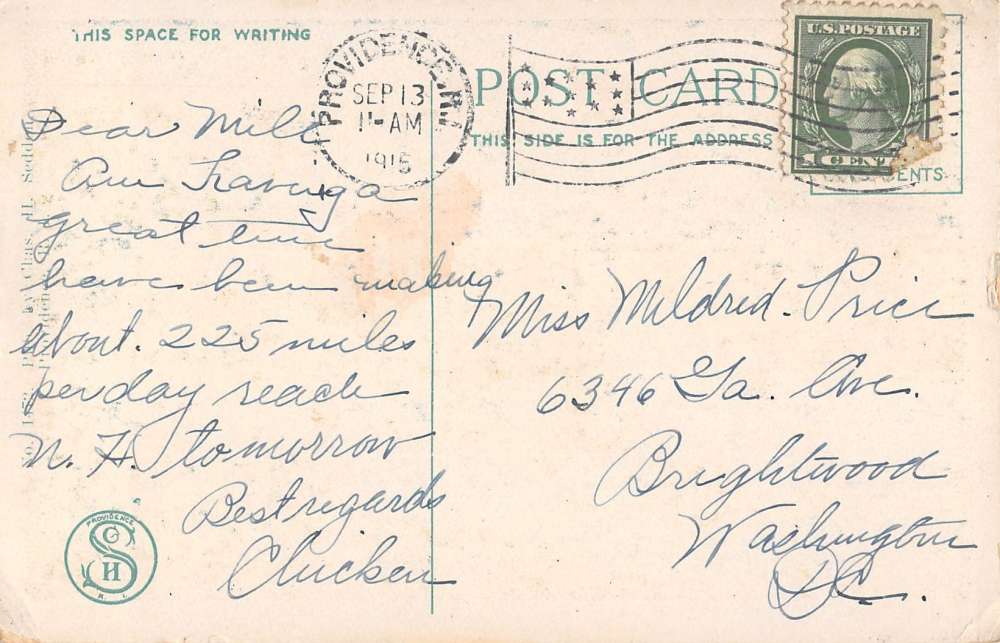 THIS SPACE FOR WRITING
PROVIDENCE, R.I.
SEP 13
11-AM
1915
POST CARD
THIS SIDE IS FOR THE ADDRESS
U.S. POSTAGE
1 CENT 1
CENTS
Dear Mill
Am having a
great time
have been making
about. 225 miles
per day reach
N. H. tomorrow
Best regards
Chicken
Miss Mildred. Price
6346 Ga. Ave.
Brightwood
Washington
DC.
by Chas. H. Seddon
PROVIDENCE
C S H
R. I.